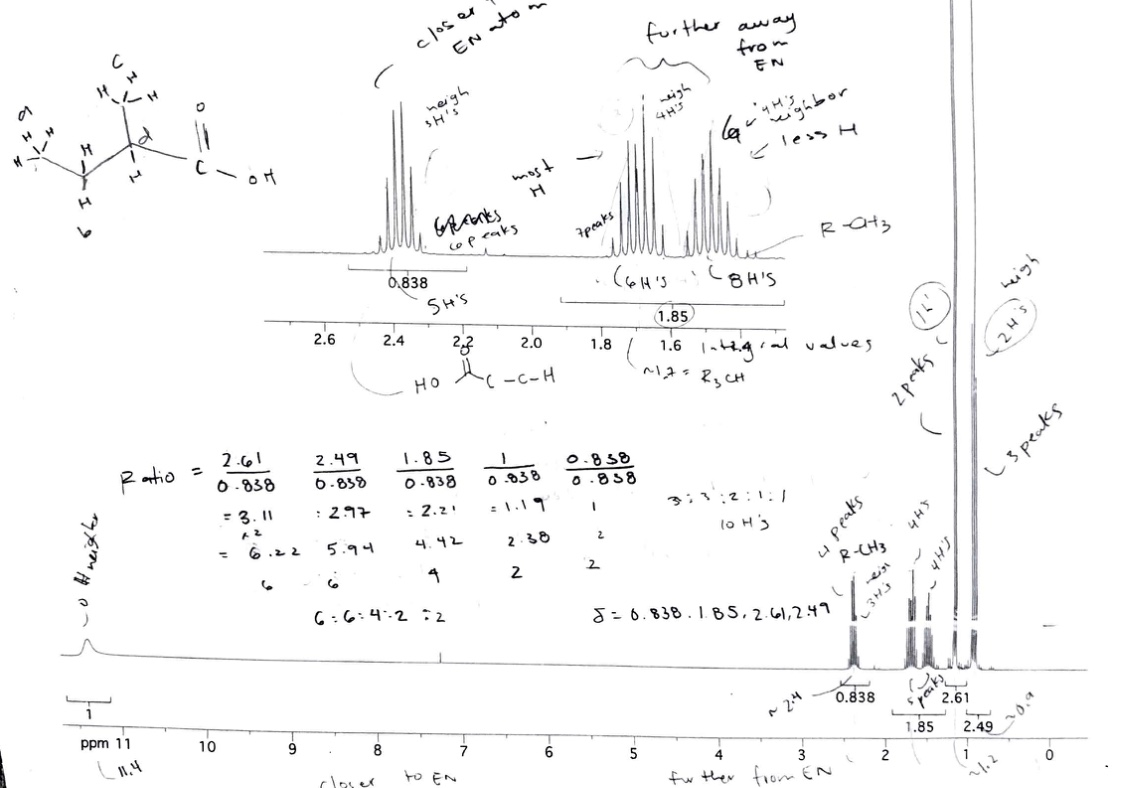 closer
EN atom
further away
from
EN
C
H
H
H
a
H
H
H
d
H
H
H
b
O
C
OH
neigh
5H's
neigh
4H's
4H's
neighbor
less H
most
H
6 peaks
7 peaks
R-CH3
0.838
5H's
6H's
8H's
1.85
2.6
2.4
2.2
2.0
1.8
1.6
Integral values
HO
C-C-H
~1.7 = R3CH
1H
neigh
2H's
2 peaks
3 peaks
Ratio = 2.61/0.838 2.49/0.838 1.85/0.838 1/0.838 0.838/0.838
= 3.11 : 2.97 : 2.21 = 1.19 1
x2
= 6.22 5.94 4.42 2.38 2
6 6 4 2 2
6:6:4:2:2
3:3:2:1:1
10 H's
δ = 0.838, 1.85, 2.61, 2.49
OH neighbor
4 peaks
R-CH3
neigh
3H's
4H's
4H's
~2.4
0.838
5 peaks
2.61
1.85
2.49
~0.9
~1.2
1
ppm 11 10 9 8 7 6 5 4 3 2 1 0
11.4
closer to EN
further from EN